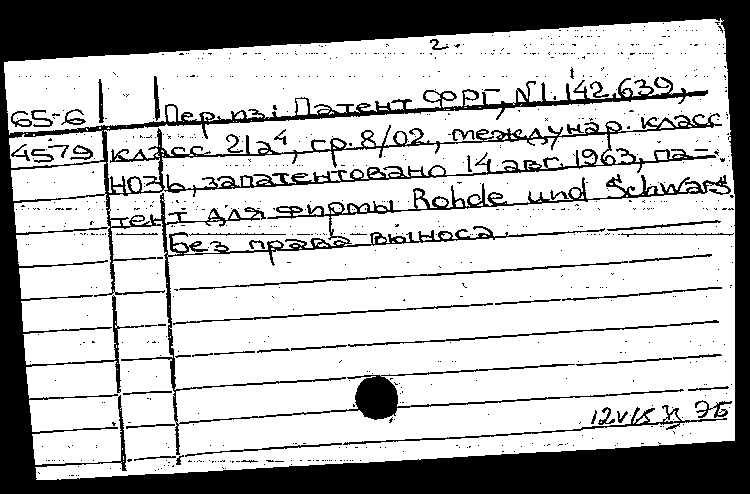 2.
65-6 Пер. из: Патент ФРГ, №1.142.639,
4579 класс 21а⁴, гр. 8/02, междунар. класс
H03b, запатентовано 14 авг. 1963, па-
тент для фирмы Rohde und Schwarz
Без права выноса.
ЭБ